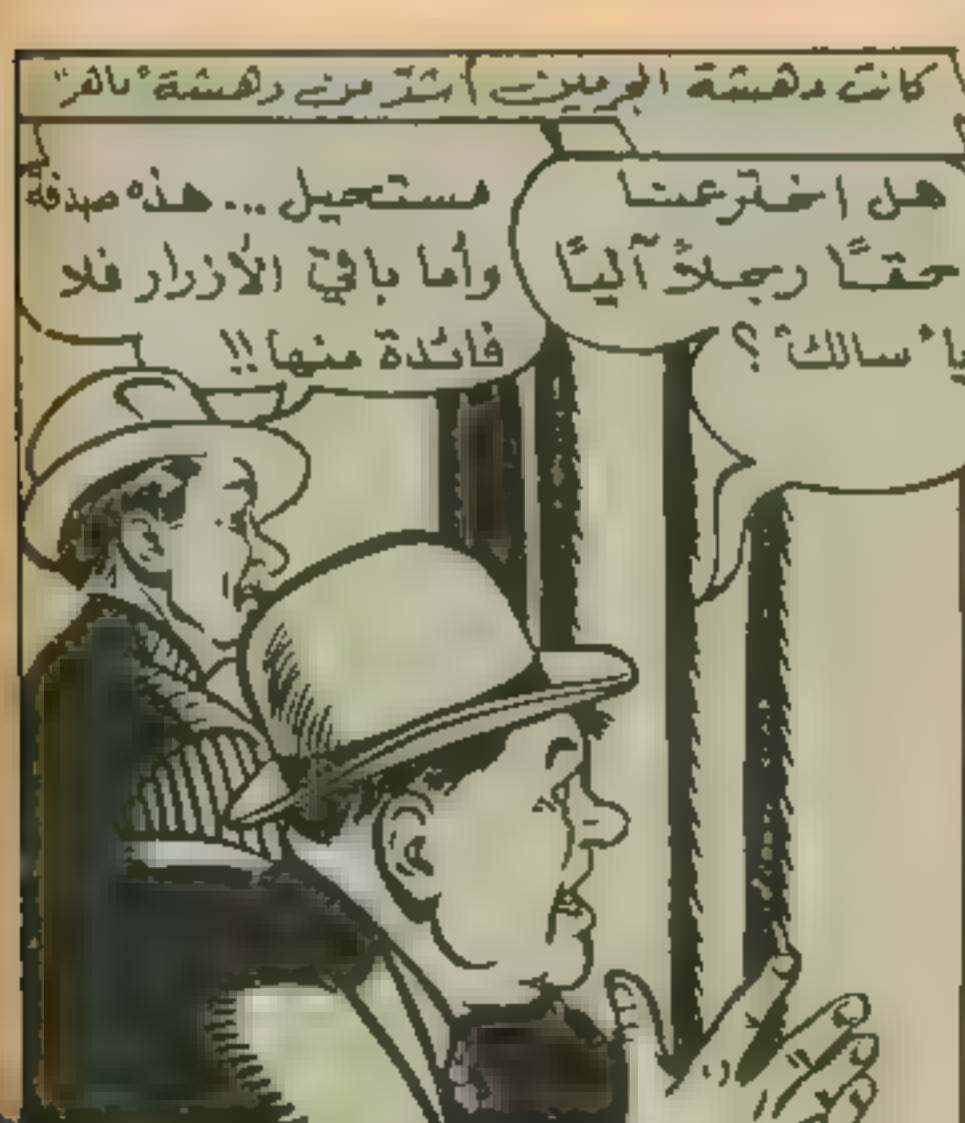 كانت دهشة المجرمين أشدّ من دهشة "باهر"
هل اخترعت
حقًّا رجلاً آليًّا
يا "سالك" ؟
مستحيل ... هذه صدفة
وأما باقي الأزرار فلا
فائدة منها !!